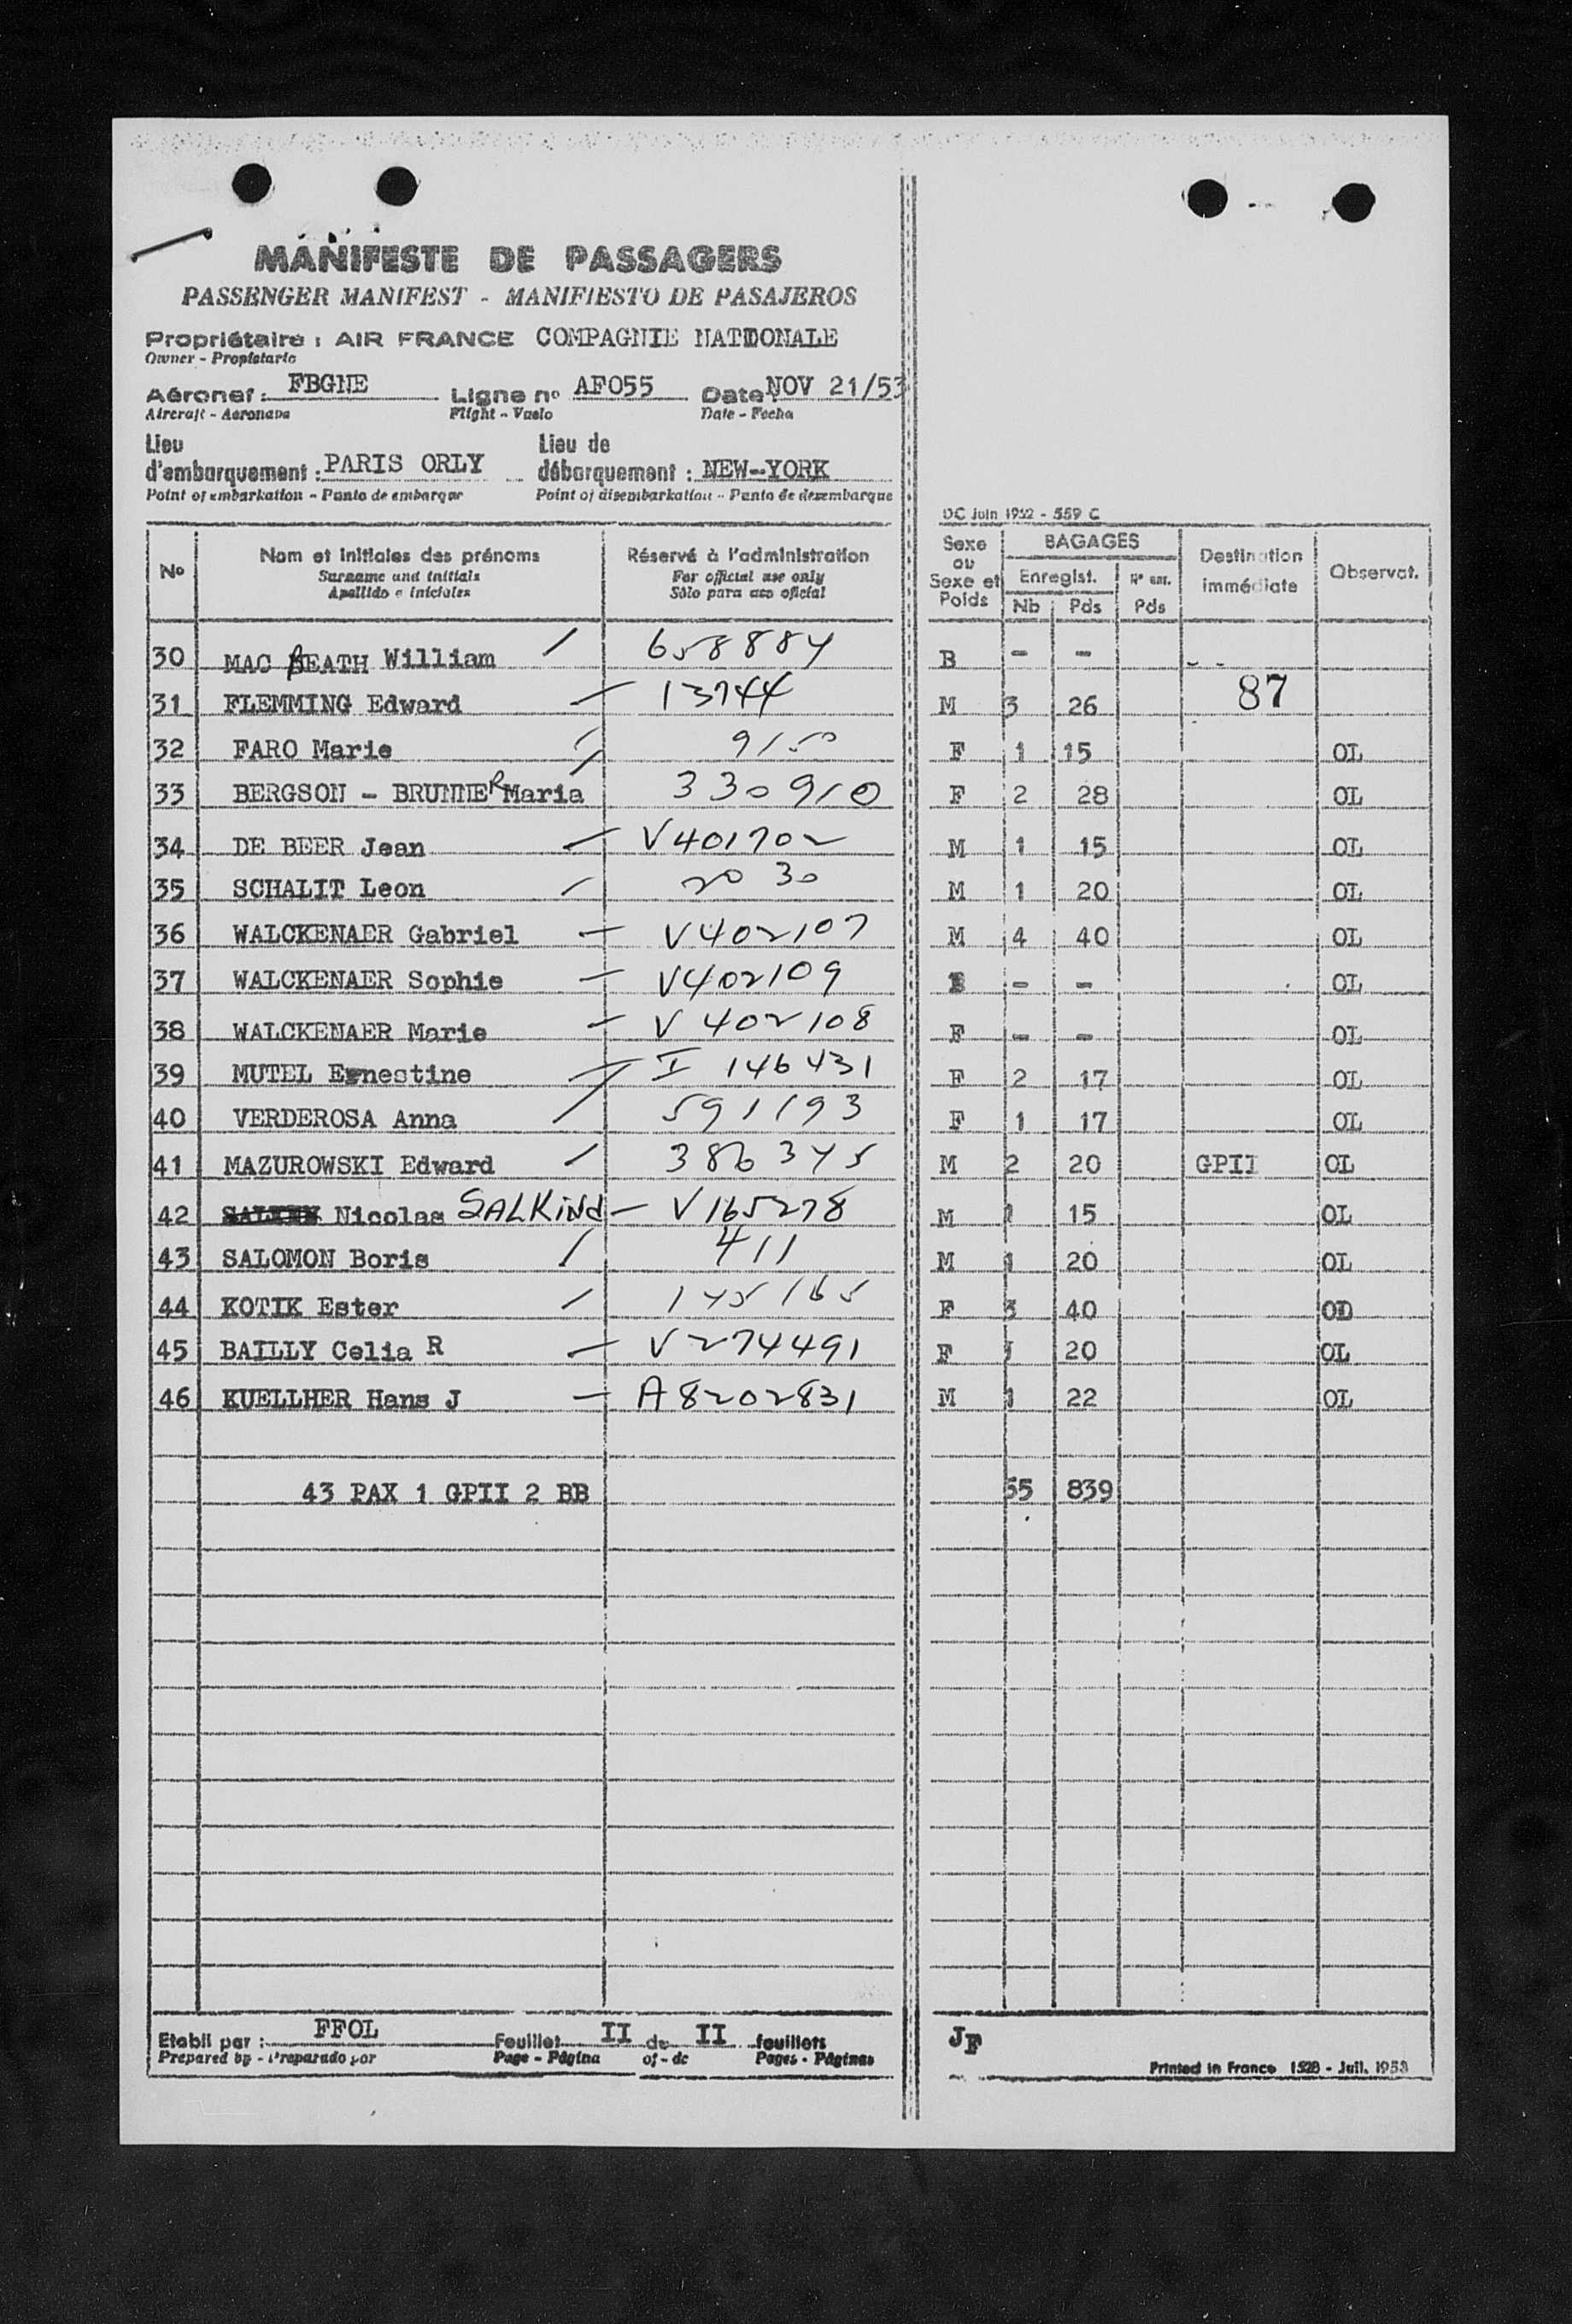 MANIFESTE DE PASSAGERS
PASSENGER MANIFEST - MANIFIESTO DE PASAJEROS
Propriétaire : AIR FRANCE COMPAGNIE NATIONALE
Owner - Propietario
Aéronef : FBGNE Ligne nº AF055 Date NOV 21/53
Aircraft - Aeronave Flight - Vuelo Date - Fecha
Lieu d'embarquement : PARIS ORLY Lieu de débarquement : NEW-YORK
Point of embarkation - Punto de embarque Point of disembarkation - Punto de desembarque
DC Juin 1952 - 559 C
Nº Nom et initiales des prénoms Réservé à l'administration Sexe ou Sexe et Poids BAGAGES Enregist. Nb Pds Nº enr. Pds Destination immédiate Observat.
Surname and initials For official use only
Apellido e iniciales Sólo para uso oficial
30 MAC BEATH William 658884 B - - - -
31 FLEMMING Edward 13744 M 3 26 87
32 FARO Marie 9150 F 1 15 OL
33 BERGSON - BRUNNER Maria 330910 F 2 28 OL
34 DE BEER Jean V401702 M 1 15 OL
35 SCHALIT Leon 2030 M 1 20 OL
36 WALCKENAER Gabriel V402107 M 4 40 OL
37 WALCKENAER Sophie V402109 - - OL
38 WALCKENAER Marie V 402108 F - - OL
39 MUTEL Ernestine I 146431 F 2 17 OL
40 VERDEROSA Anna 591193 F 1 17 OL
41 MAZUROWSKI Edward 386345 M 2 20 GPII OL
42 Nicolas SALKiNd V165278 M 1 15 OL
43 SALOMON Boris 411 M 1 20 OL
44 KOTIK Ester 145165 F 3 40 OD
45 BAILLY Celia R V274491 F 1 20 OL
46 KUELLHER Hans J A8202831 M 1 22 OL
43 PAX 1 GPII 2 BB 55 839
Etabli par : FFOL Feuillet II de II feuillets JF
Prepared by - Preparado por Page - Página of - de Pages - Páginas
Printed in France 1528 - Juil. 1953